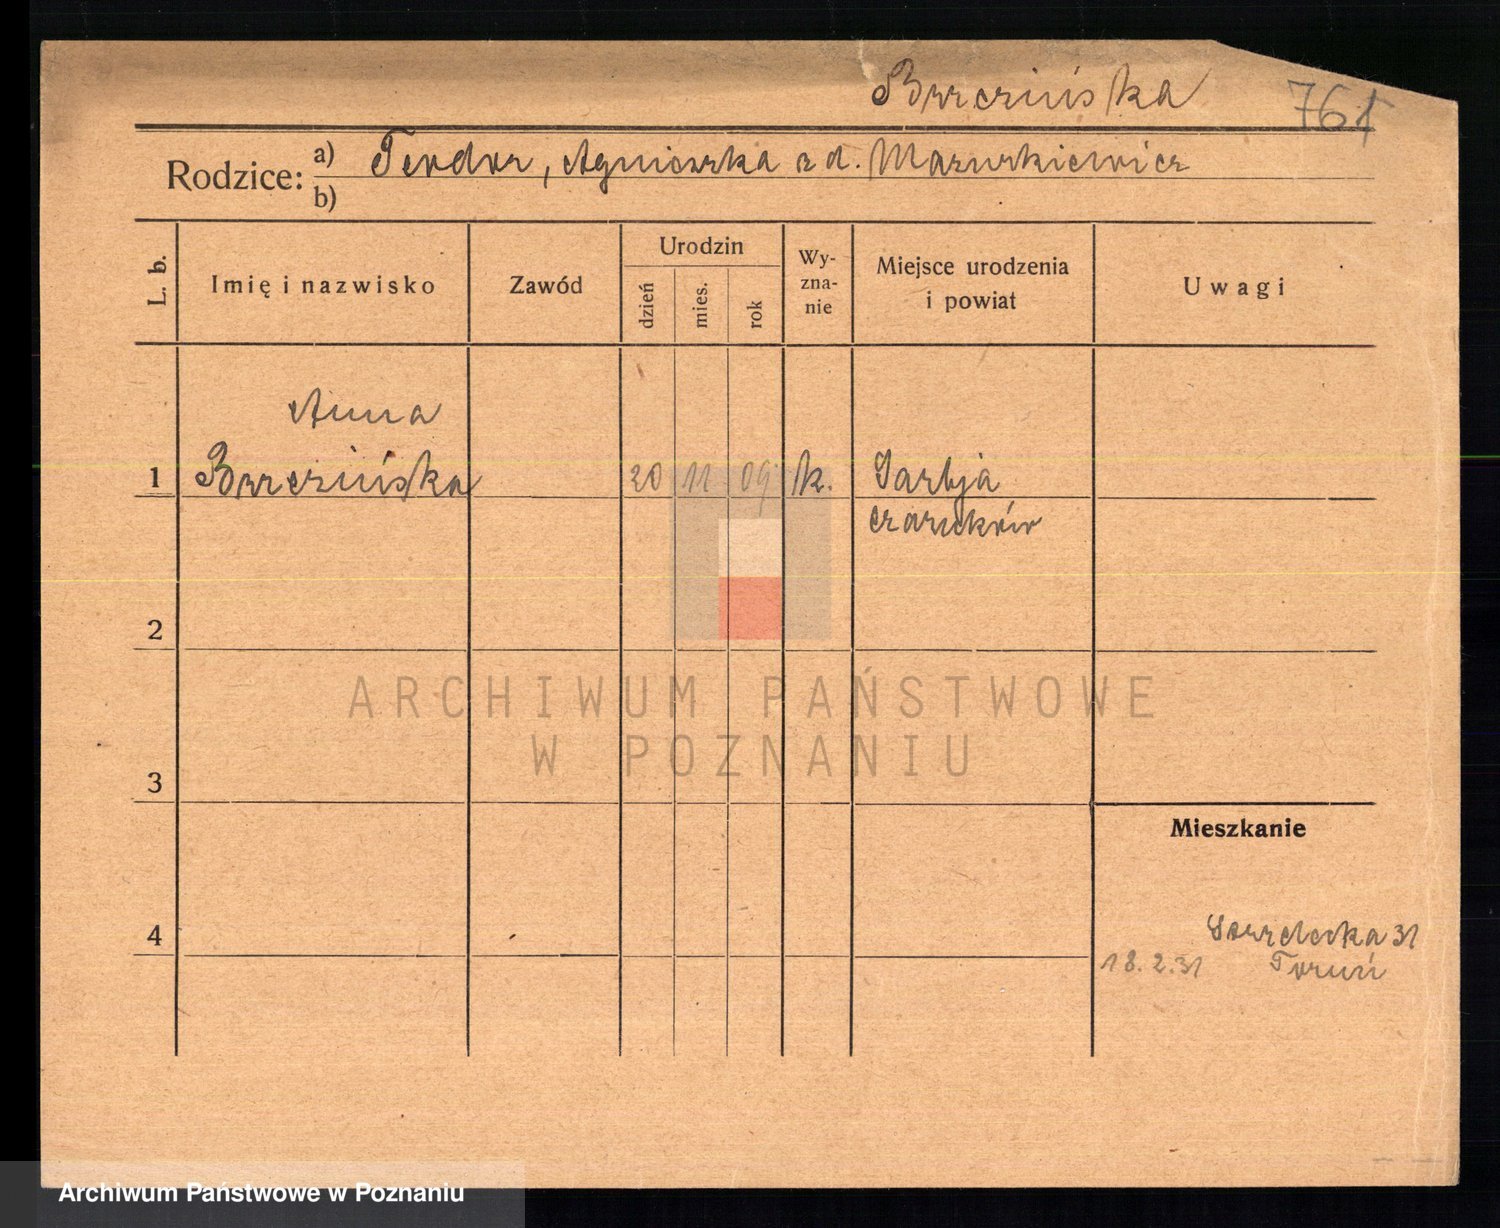 Brzezińska 761
Rodzice: a) Teodor, Agnieszka z d. Mazurkiewicz
b)
L. b. Imię i nazwisko Zawód Urodzin dzień mies. rok Wy-zna-nie Miejsce urodzenia i powiat Uwagi
Anna
1 Brzezińska 20 11 09 k. Sarbja
czarnków
2
ARCHIWUM PAŃSTWOWE
W POZNANIU
3
Mieszkanie
4
31
18.2.31 Toruń
Archiwum Państwowe w Poznaniu